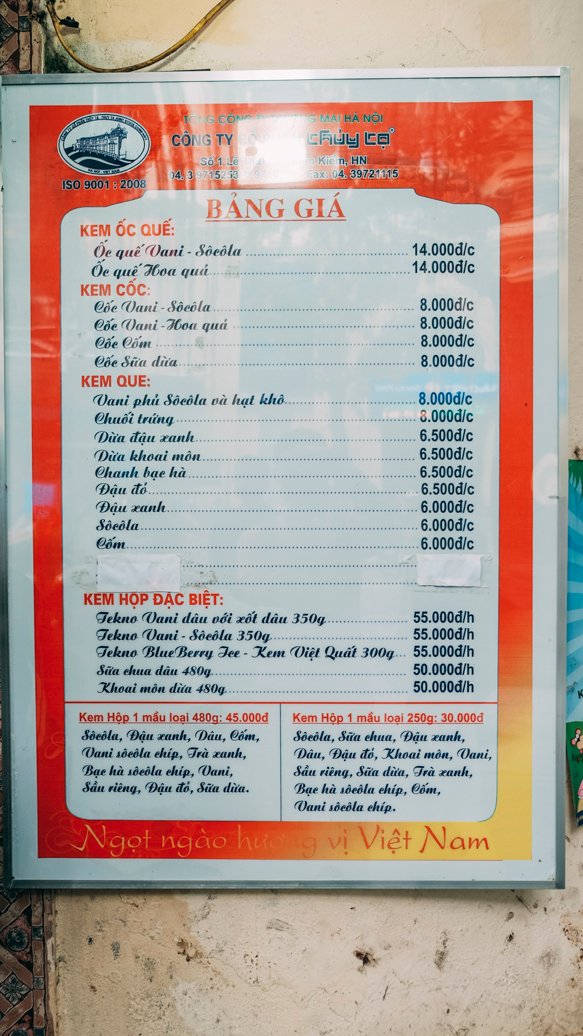 TỔNG CÔNG TY THƯƠNG MẠI HÀ NỘI
CÔNG TY CỔ PHẦN thủy tạ
Số 1 Lê Kiếm, HN
Fax: 04. 39721115
ISO 9001 : 2008
BẢNG GIÁ
KEM ỐC QUẾ:
Ốc quế Vani - Sôcôla 14.000đ/c
Ốc quế Hoa quả 14.000đ/c
KEM CỐC:
Cốc Vani - Sôcôla 8.000đ/c
Cốc Vani - Hoa quả 8.000đ/c
Cốc Cốm 8.000đ/c
Cốc Sữa dừa 8.000đ/c
KEM QUE:
Vani phủ Sôcôla và hạt khô 8.000đ/c
Chuối trứng 8.000đ/c
Dừa đậu xanh 6.500đ/c
Dừa khoai môn 6.500đ/c
Chanh bạc hà 6.500đ/c
Đậu đỏ 6.500đ/c
Đậu xanh 6.000đ/c
Sôcôla 6.000đ/c
Cốm 6.000đ/c
KEM HỘP ĐẶC BIỆT:
Tekno Vani dâu với xốt dâu 350g 55.000đ/h
Tekno Vani - Sôcôla 350g 55.000đ/h
Tekno BlueBerry Ice - Kem Việt Quất 300g 55.000đ/h
Sữa chua dâu 480g 50.000đ/h
Khoai môn dừa 480g 50.000đ/h
Kem Hộp 1 mầu loại 480g: 45.000đ
Sôcôla, Đậu xanh, Dâu, Cốm,
Vani sôcôla chíp, Trà xanh,
Bạc hà sôcôla chíp, Vani,
Sầu riêng, Đậu đỏ, Sữa dừa.
Kem Hộp 1 mầu loại 250g: 30.000đ
Sôcôla, Sữa chua, Đậu xanh,
Dâu, Đậu đỏ, Khoai môn, Vani,
Sầu riêng, Sữa dừa, Trà xanh,
Bạc hà sôcôla chíp, Cốm,
Vani sôcôla chíp.
Ngọt ngào hương vị Việt Nam